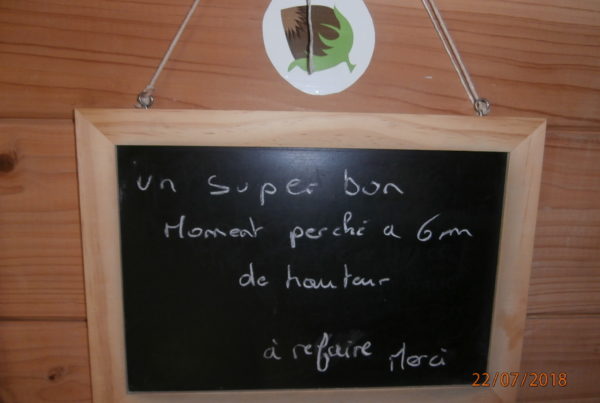 un super bon
Moment perché a 6m
de hauteur
à refaire Merci
22/07/2018